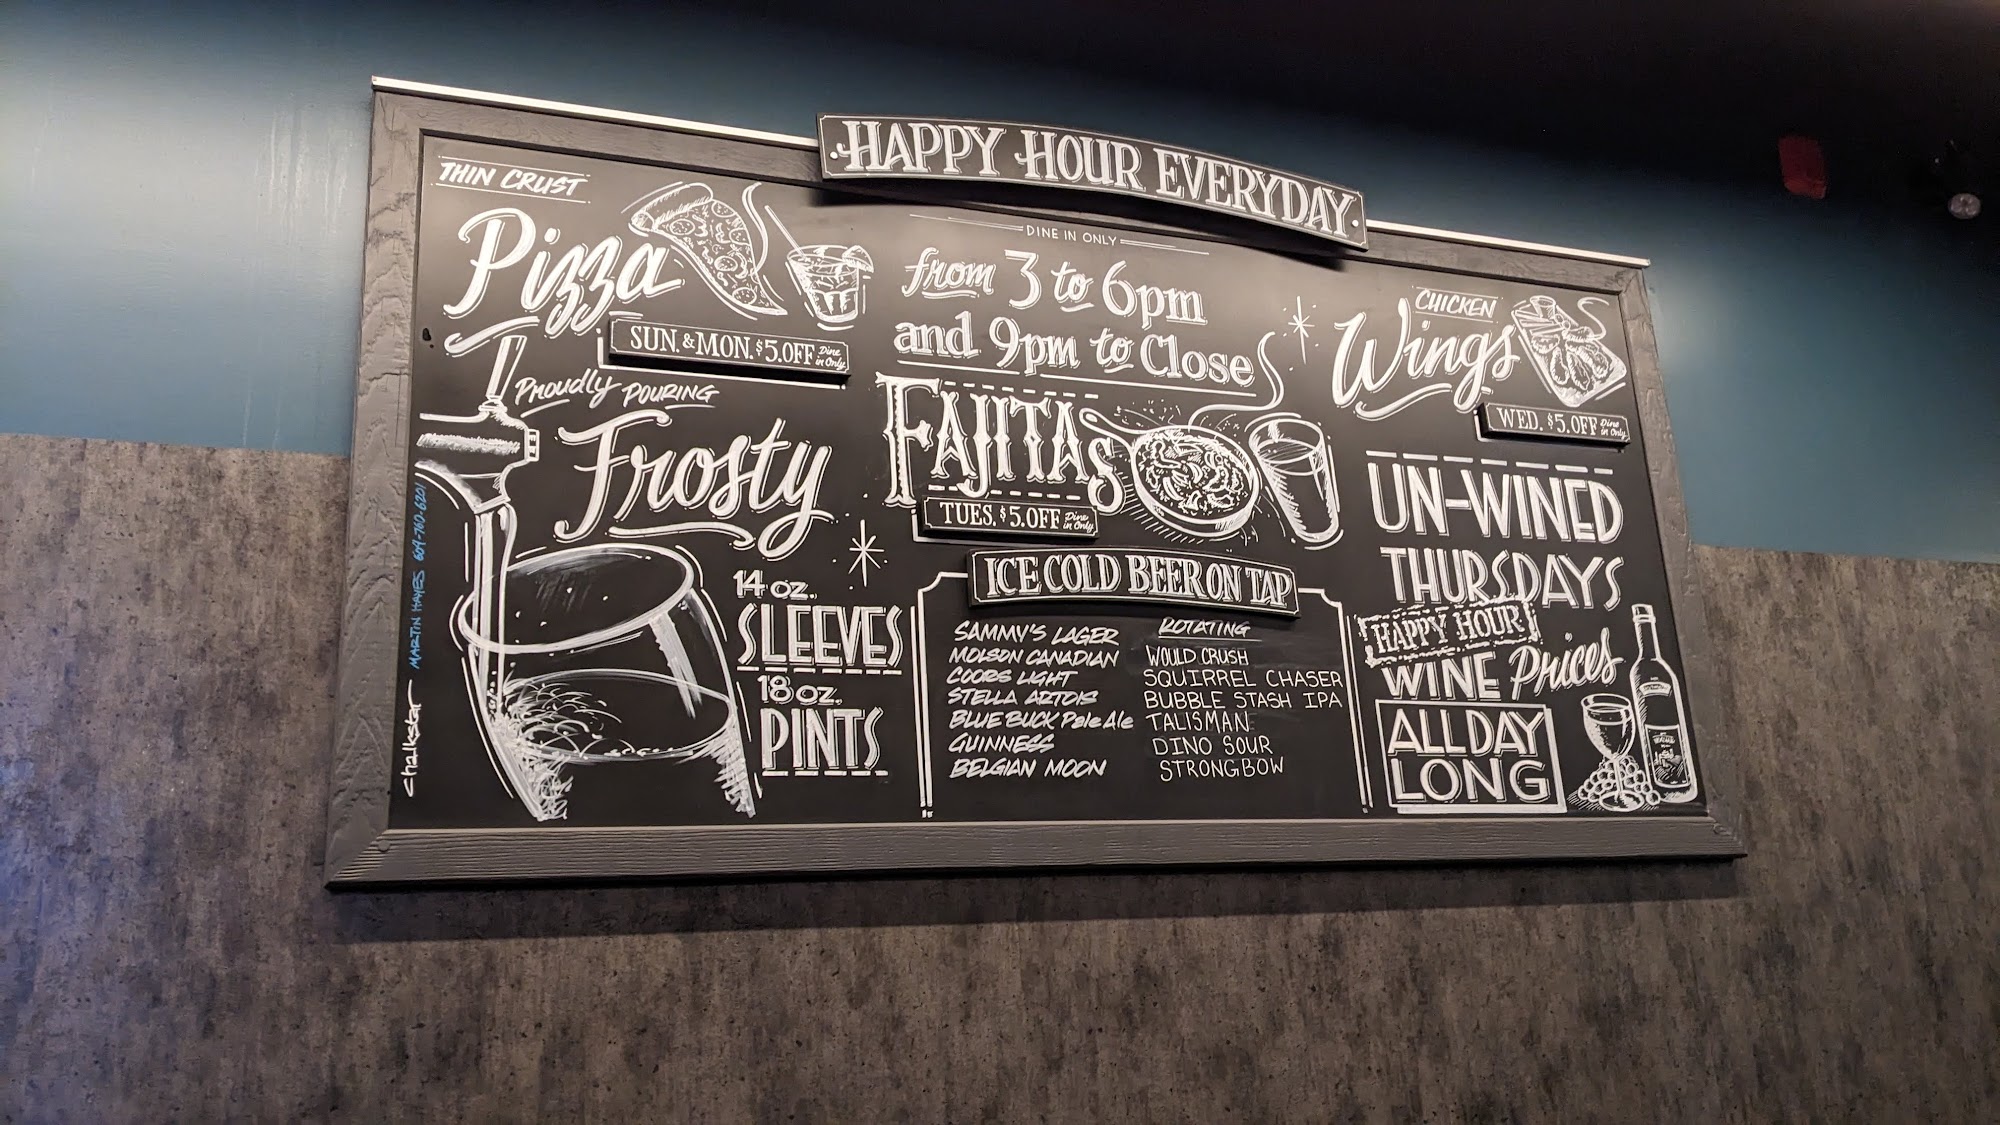 HAPPY HOUR EVERYDAY
DINE IN ONLY
from 3 to 6pm
and 9pm to Close
THIN CRUST
Pizza
SUN. & MON. $5.OFF Dine in Only
Proudly POURING
Frosty
14 oz.
SLEEVES
18 oz.
PINTS
FAJITAS
TUES. $5.OFF Dine in Only
ICE COLD BEER ON TAP
SAMMY'S LAGER
MOLSON CANADIAN
COORS LIGHT
STELLA ARTOIS
BLUE BUCK Pale Ale
GUINNESS
BELGIAN MOON
ROTATING
WOULD CRUSH
SQUIRREL CHASER
BUBBLE STASH IPA
TALISMAN
DINO SOUR
STRONGBOW
CHICKEN
Wings
WED. $5.OFF Dine in Only
UN-WINED
THURSDAYS
HAPPY HOUR
WINE Prices
ALL DAY
LONG
chalkstar MARTIN HAYES 604-760-6201